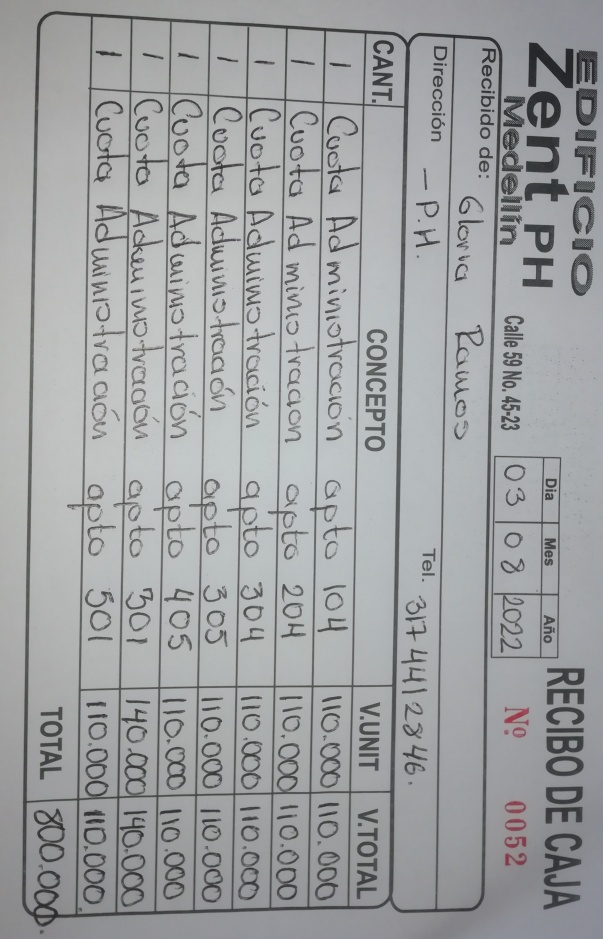 EDIFICIO
Zent PH
Medellín
Calle 59 No. 45-23
RECIBO DE CAJA
Dia Mes Año
03 08 2022
Nº 0052
Recibido de: Gloria Ramos
Dirección - P.H. Tel. 3174412846.
CANT. CONCEPTO V.UNIT V.TOTAL
1 Cuota Administración apto 104 110.000 110.000
1 Cuota Administracion apto 204 110.000 110.000
1 Cuota Administración apto 304 110.000 110.000
1 Cuota Administración apto 305 110.000 110.000
1 Cuota Administración apto 405 110.000 110.000
1 Cuota Administración apto 301 140.000 140.000
1 Cuota Administración apto 501 110.000 110.000.
TOTAL 800.000.